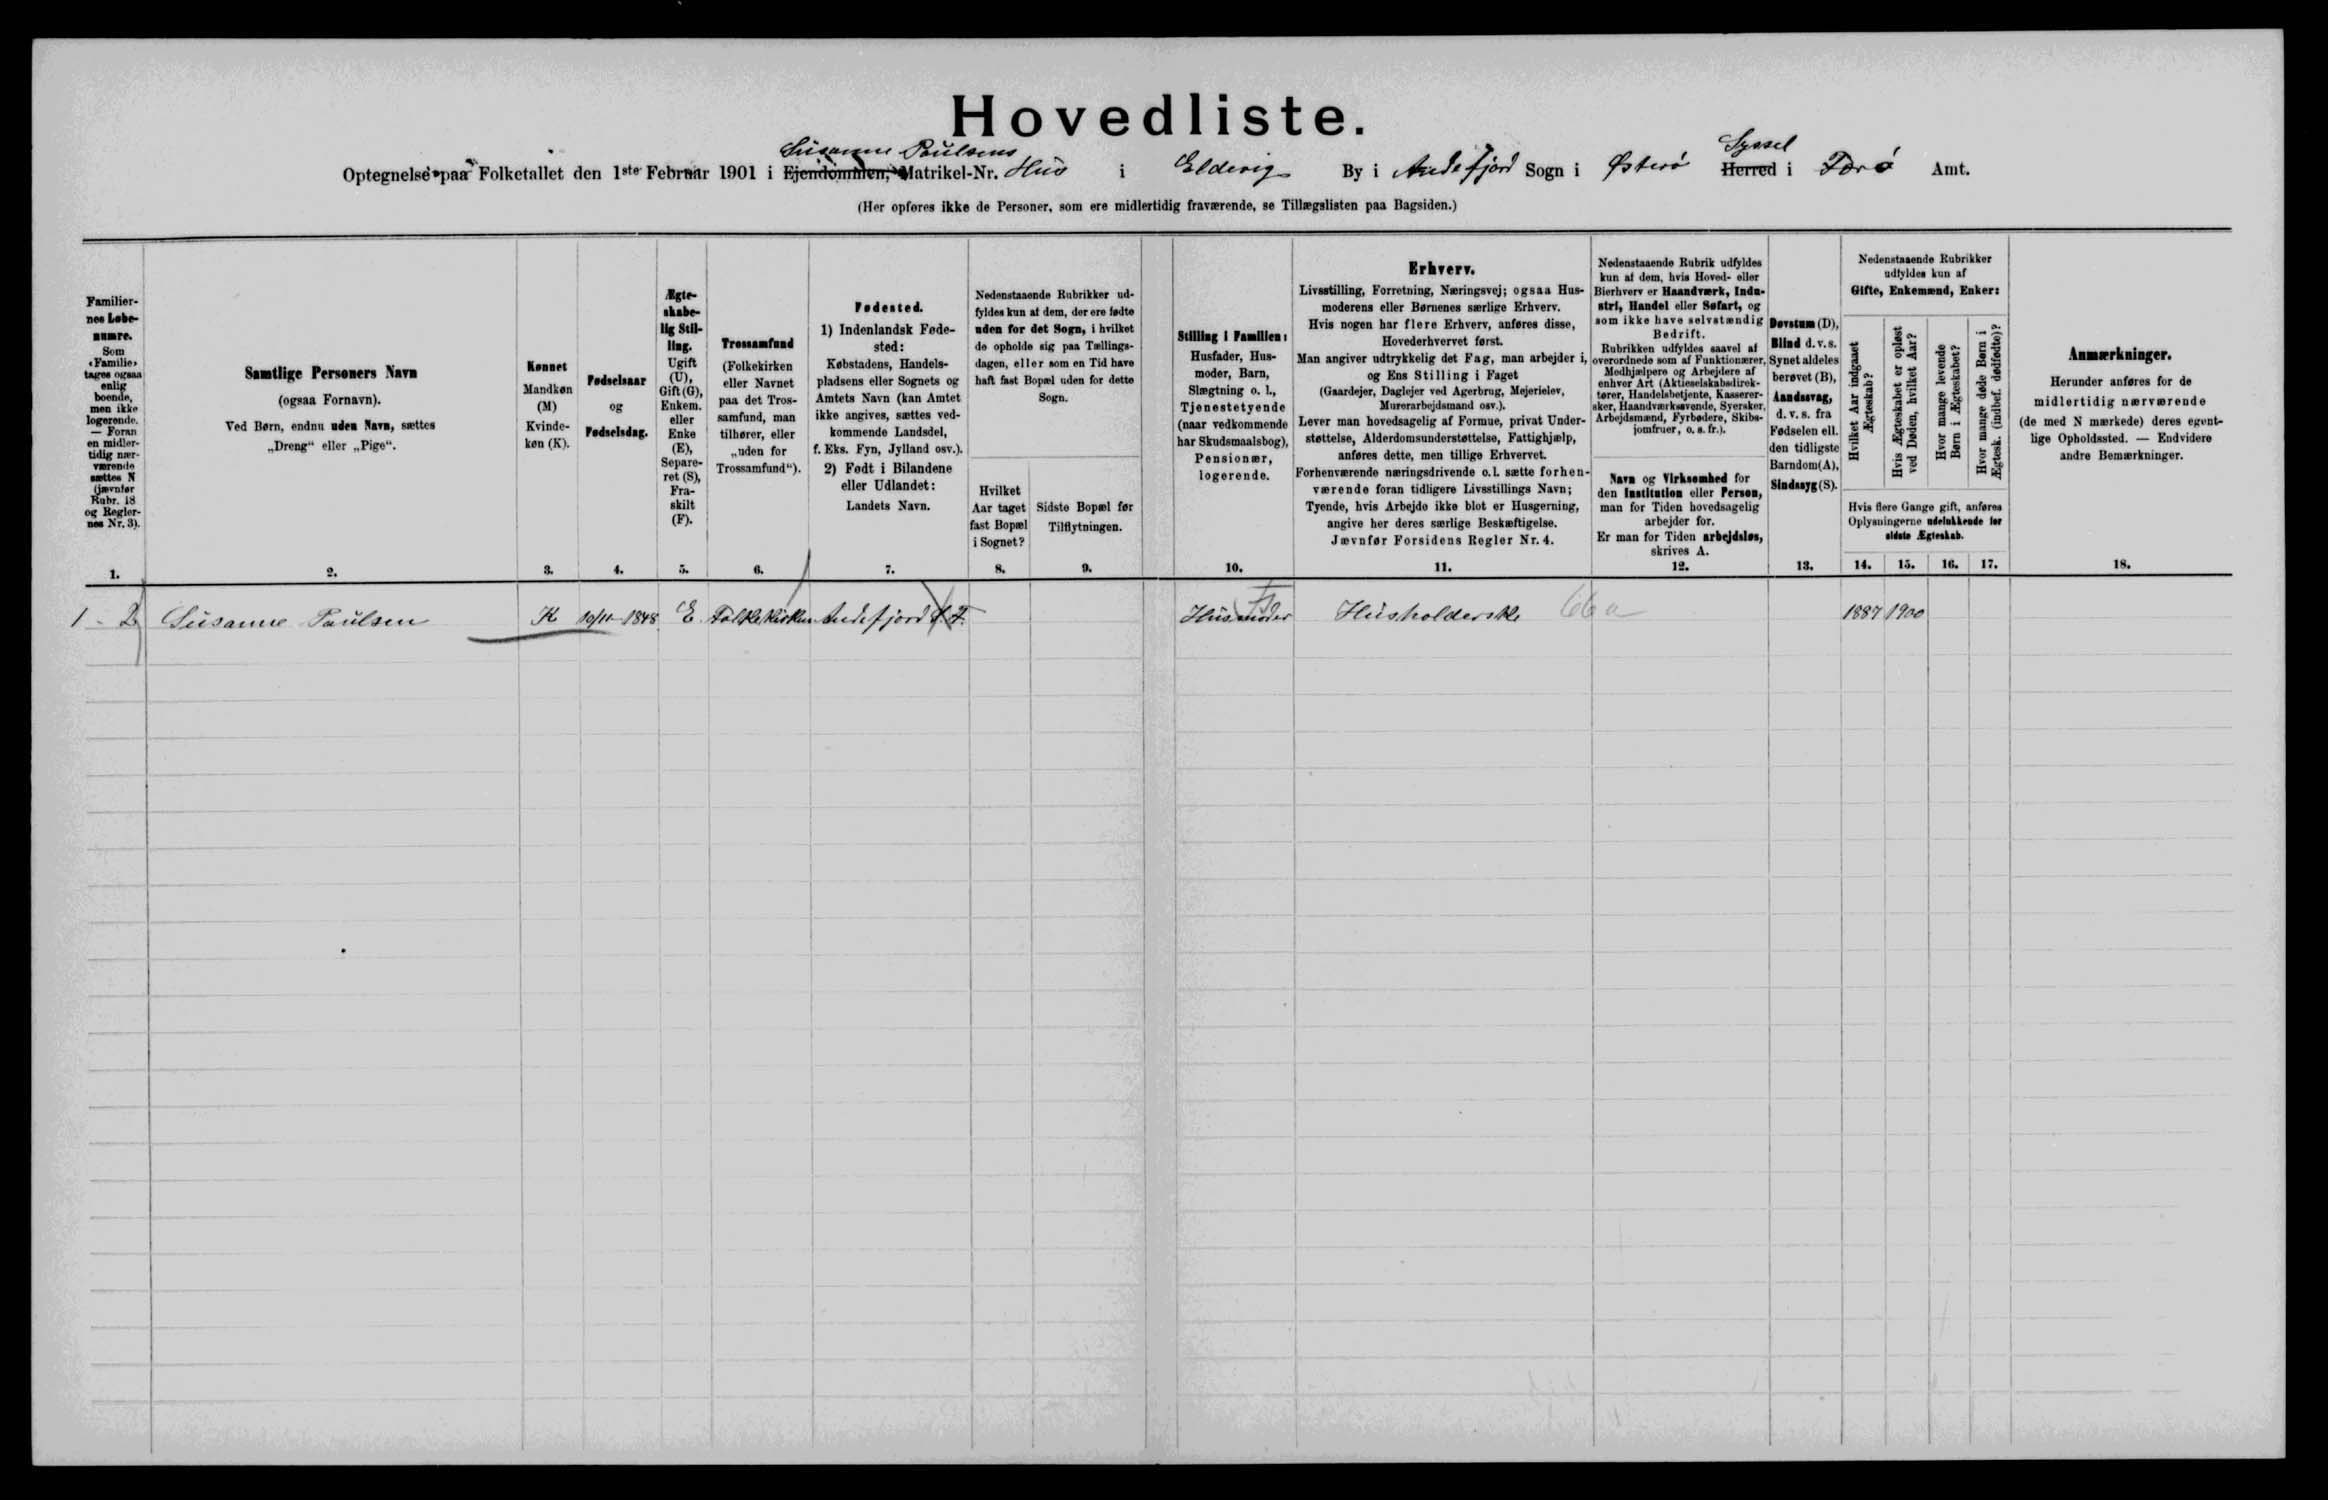 Hovedliste.
Susanne Paulsens Syssel
Optegnelse paa Folketallet den 1ste Februar 1901 i Ejendommen, Matrikel-Nr. Hus i Eldevig By i Andefjord Sogn i Østerø Herred i Færø Amt.
(Her opføres ikke de Personer, som ere midlertidig fraværende, se Tillægslisten paa Bagsiden.)
Familier-
nes Løbe-
numre.
Som
«Familie»
tages ogsaa
enlig
boende,
men ikke
logerende.
— Foran
en midler-
tidig nær-
værende
sættes N
(jævnfør
Rubr. 18
og Regler-
nes Nr. 3).
1.
Samtlige Personers Navn
(ogsaa Fornavn).
Ved Børn, endnu uden Navn, sættes
„Dreng“ eller „Pige“.
2.
Kønnet
Mandkøn
(M)
Kvinde-
køn (K).
3.
Fødselsaar
og
Fødselsdag.
4.
Ægte-
skabe-
lig Stil-
ling.
Ugift
(U),
Gift (G),
Enkem.
eller
Enke
(E),
Separe-
ret (S),
Fra-
skilt
(F).
5.
Trossamfund
(Folkekirken
eller Navnet
paa det Tros-
samfund, man
tilhører, eller
„uden for
Trossamfund“).
6.
Fødested.
1) Indenlandsk Føde-
sted:
Købstadens, Handels-
pladsens eller Sognets og
Amtets Navn (kan Amtet
ikke angives, sættes ved-
kommende Landsdel,
f. Eks. Fyn, Jylland osv.).
2) Født i Bilandene
eller Udlandet:
Landets Navn.
7.
Nedenstaaende Rubrikker ud-
fyldes kun af dem, der ere fødte
uden for det Sogn, i hvilket
de opholde sig paa Tællings-
dagen, eller som en Tid have
haft fast Bopæl uden for dette
Sogn.
Hvilket
Aar taget
fast Bopæl
i Sognet?
8.
Sidste Bopæl før
Tilflytningen.
9.
Stilling i Familien:
Husfader, Hus-
moder, Barn,
Slægtning o. l.,
Tjenestetyende
(naar vedkommende
har Skudsmaalsbog),
Pensionær,
logerende.
10.
Erhverv.
Livsstilling, Forretning, Næringsvej; ogsaa Hus-
moderens eller Børnenes særlige Erhverv.
Hvis nogen har flere Erhverv, anføres disse,
Hovederhvervet først.
Man angiver udtrykkelig det Fag, man arbejder i,
og Ens Stilling i Faget
(Gaardejer, Daglejer ved Agerbrug, Mejerielev,
Murerarbejdsmand osv.).
Lever man hovedsagelig af Formue, privat Under-
støttelse, Alderdomsunderstøttelse, Fattighjælp,
anføres dette, men tillige Erhvervet.
Forhenværende næringsdrivende o. l. sætte forhen-
værende foran tidligere Livsstillings Navn;
Tyende, hvis Arbejde ikke blot er Husgerning,
angive her deres særlige Beskæftigelse.
Jævnfør Forsidens Regler Nr. 4.
11.
Nedenstaaende Rubrik udfyldes
kun af dem, hvis Hoved- eller
Bierhverv er Haandværk, Indu-
stri, Handel eller Søfart, og
som ikke have selvstændig
Bedrift.
Rubrikken udfyldes saavel af
overordnede som af Funktionærer,
Medhjælpere og Arbejdere af
enhver Art (Aktieselskabsdirek-
tører, Handelsbetjente, Kasserer-
sker, Haandværkssvende, Syersker,
Arbejdsmænd, Fyrbødere, Skibs-
jomfruer, o. s. fr.).
Navn og Virksomhed for
den Institution eller Person,
man for Tiden hovedsagelig
arbejder for.
Er man for Tiden arbejdsløs,
skrives A.
12.
Døvstum (D),
Blind d. v. s.
Synet aldeles
berøvet (B),
Aandssvag,
d. v. s. fra
Fødselen ell.
den tidligste
Barndom (A),
Sindssyg (S).
13.
Nedenstaaende Rubrikker
udfyldes kun af
Gifte, Enkemænd, Enker:
Hvilket Aar indgaaet
Ægteskab?
Hvis Ægteskabet er opløst
ved Døden, hvilket Aar?
Hvor mange levende
Børn i Ægteskabet?
Hvor mange døde Børn i
Ægtesk. (indbef. dødfødte)?
Hvis flere Gange gift, anføres
Oplysningerne udelukkende for
sidste Ægteskab.
14. 15. 16. 17.
Anmærkninger.
Herunder anføres for de
midlertidig nærværende
(de med N mærkede) deres egent-
lige Opholdssted. — Endvidere
andre Bemærkninger.
18.
1 - 2 Susanne Paulsen K 10/11 1848 E. Folkekirken Andefjord S. F. Husmoder Husholderske 66 a 1887 1900